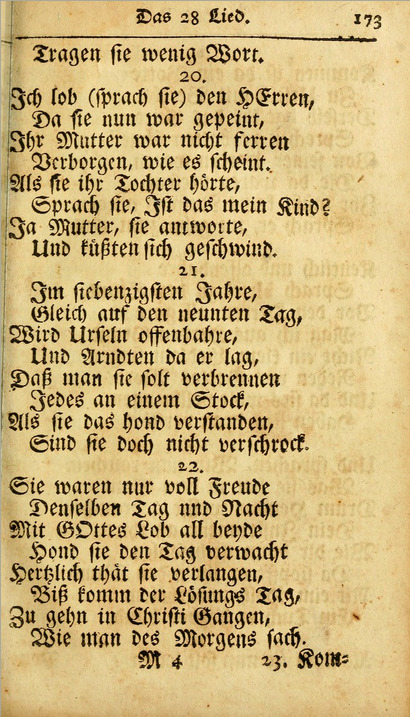 Das 28 Lied. 173
Tragen sie wenig Wort.
20.
Jch lob (sprach sie) den HErren,
Da sie nun war gepeint,
Jhr Mutter war nicht ferren
Verborgen, wie es scheint.
Als sie ihr Tochter hörte,
Sprach sie, Jst das mein Kind?
Ja Mutter, sie antworte,
Und küßten sich geschwind.
21.
Jm siebenzigsten Jahre,
Gleich auf den neunten Tag,
Wird Urseln offenbahre,
Und Arndten da er lag,
Daß man sie solt verbrennen
Jedes an einem Stock,
Als sie das hond verstanden,
Sind sie doch nicht verschrock.
22.
Sie waren nur voll Freude
Denselben Tag und Nacht
Mit GOttes Lob all beyde
Hond sie den Tag verwacht
Hertzlich thät sie verlangen,
Biß komm der Lösungs Tag,
Zu gehn in Christi Gangen,
Wie man des Morgens sach.
M 4 23. Kom=